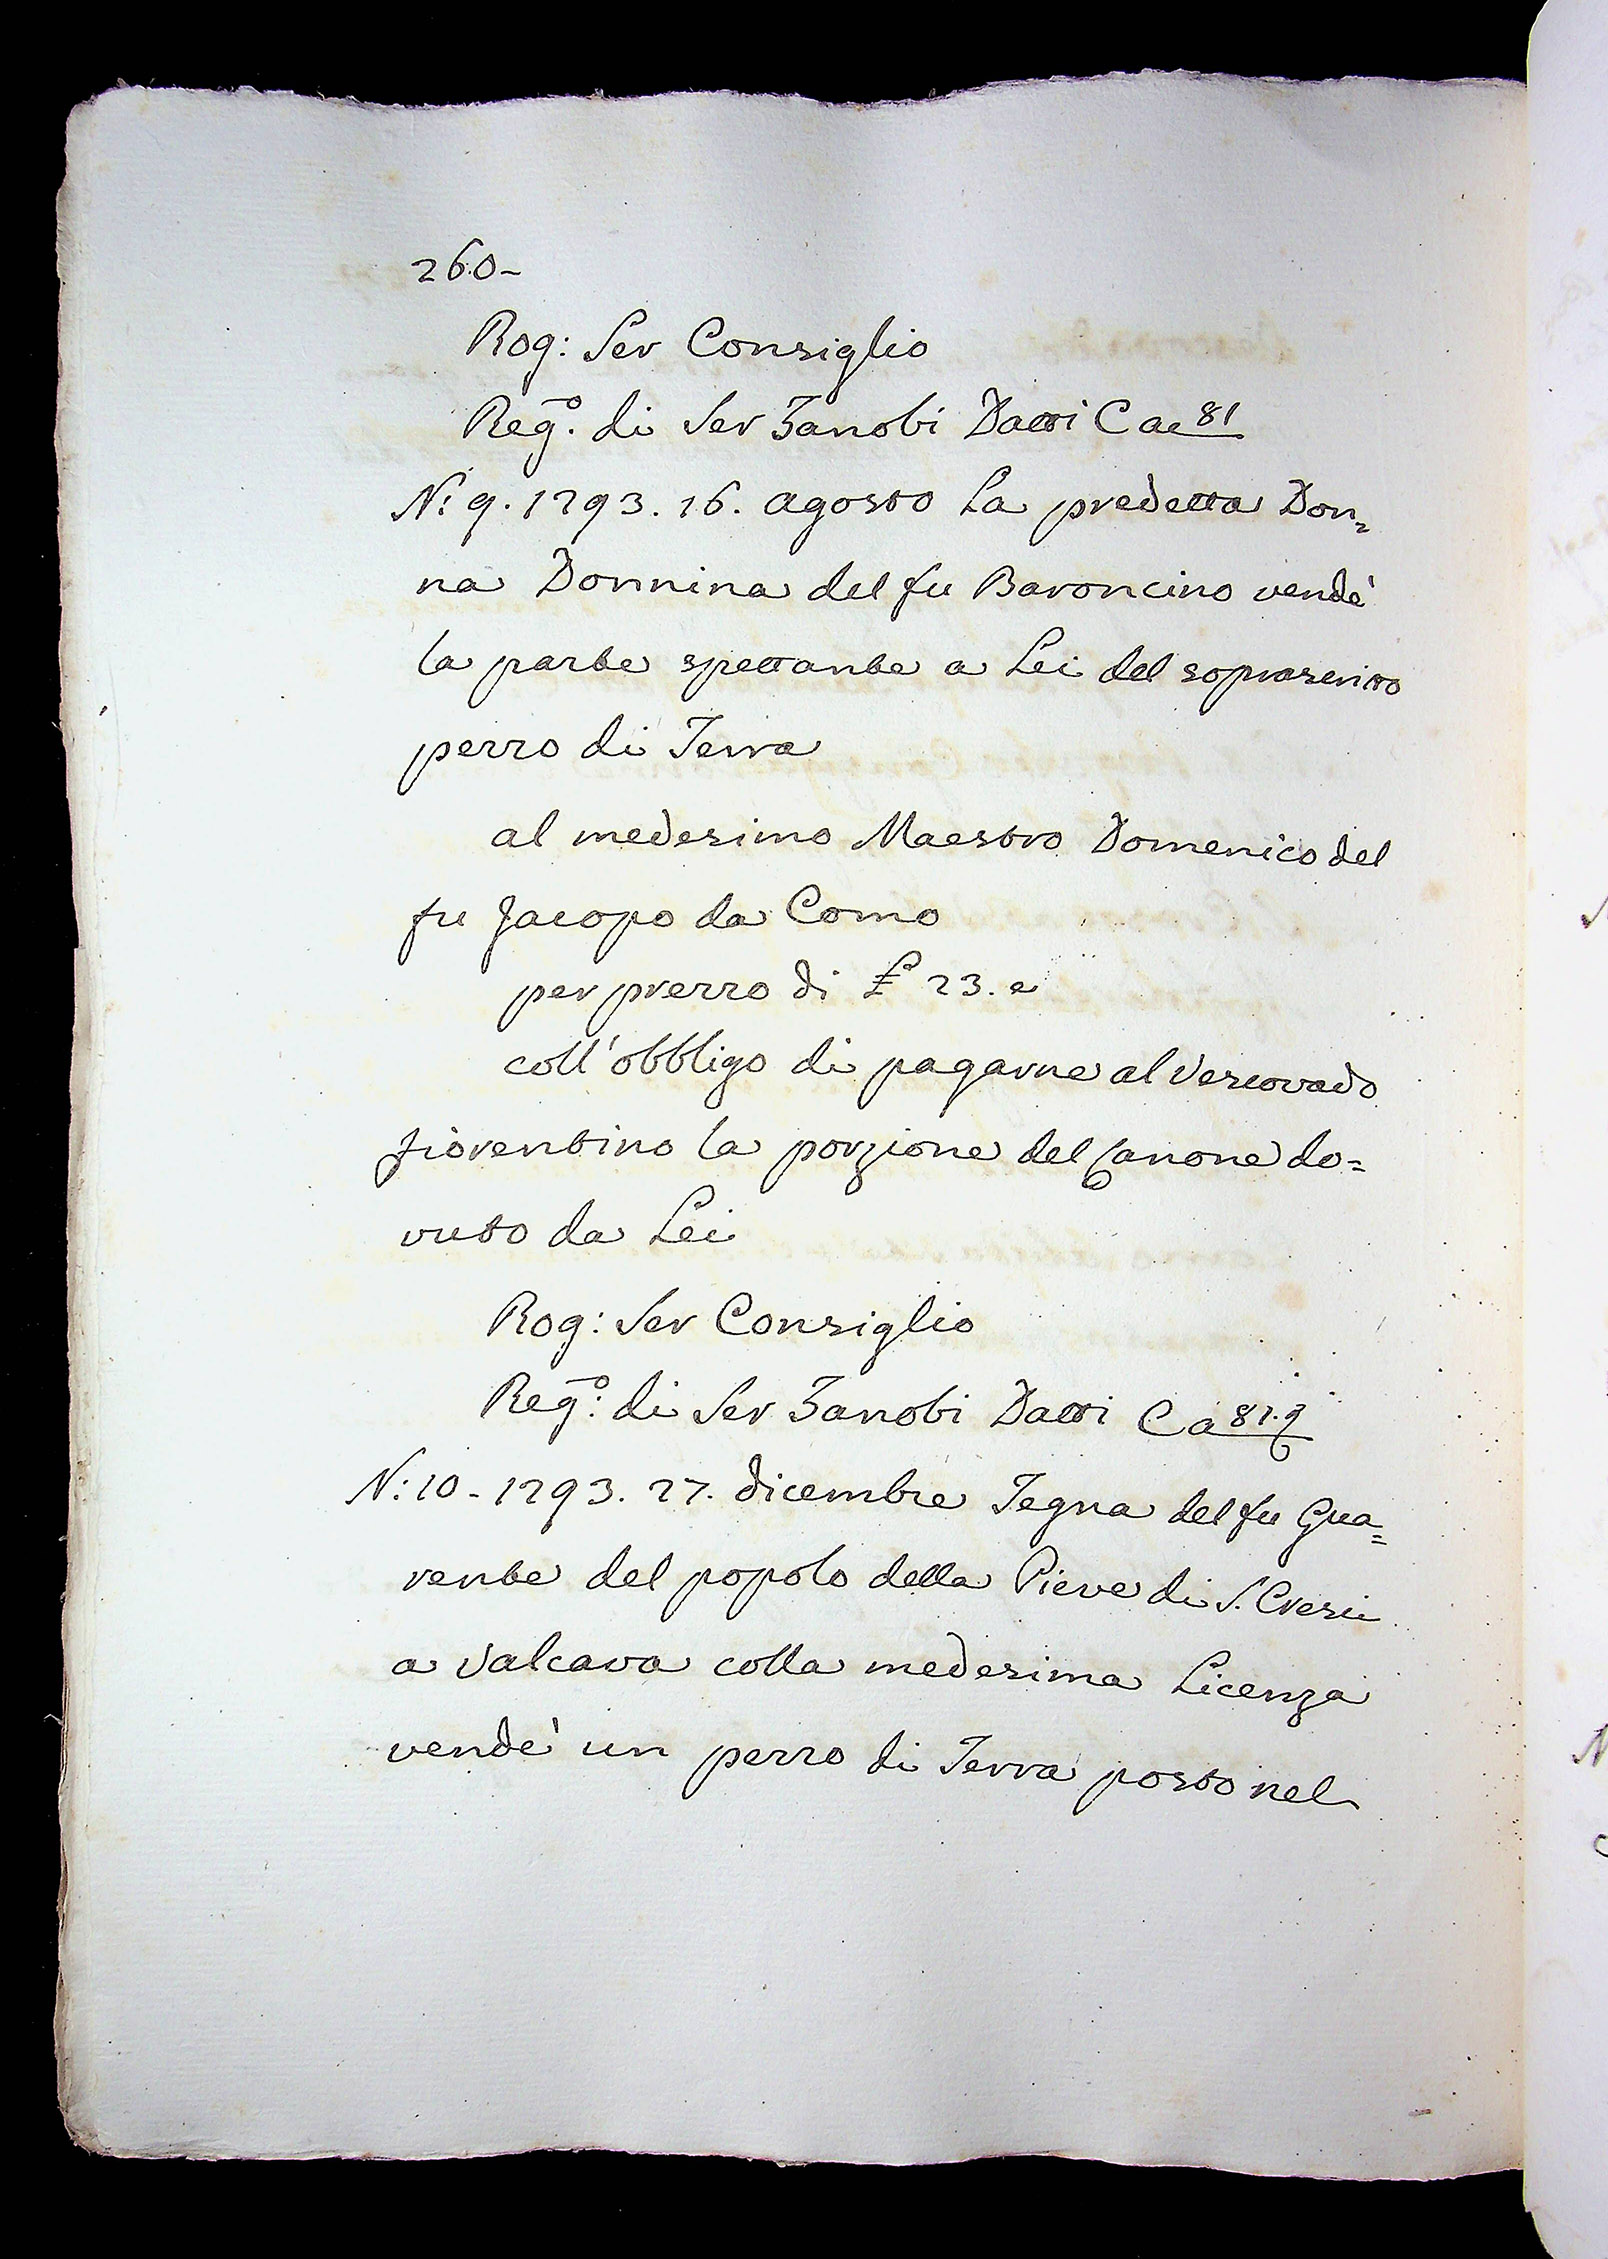 260-
Rog: Ser Consiglio
Reg.º di Ser Zanobi Datti Ca 81
N: 9. 1293. 16. agosto La predetta Don=
na Donnina del fu Baroncino vendè
la parte spettante a Lei del soprascritto
pezzo di Terra
al medesimo Maestro Domenico del
fu Jacopo da Como
per prezzo di £ 23. e
coll'obbligo di pagarne al Vescovado
fiorentino la porzione del Canone do=
vuto da Lei
Rog: Ser Consiglio
Reg.º di Ser Zanobi Datti Ca 81.
N: 10 - 1293. 27. dicembre Tegna del fu Gua=
rente del popolo della Pieve di S. Cresci
a Valcava colla medesima Licenza
vendè un pezzo di Terra posto nel